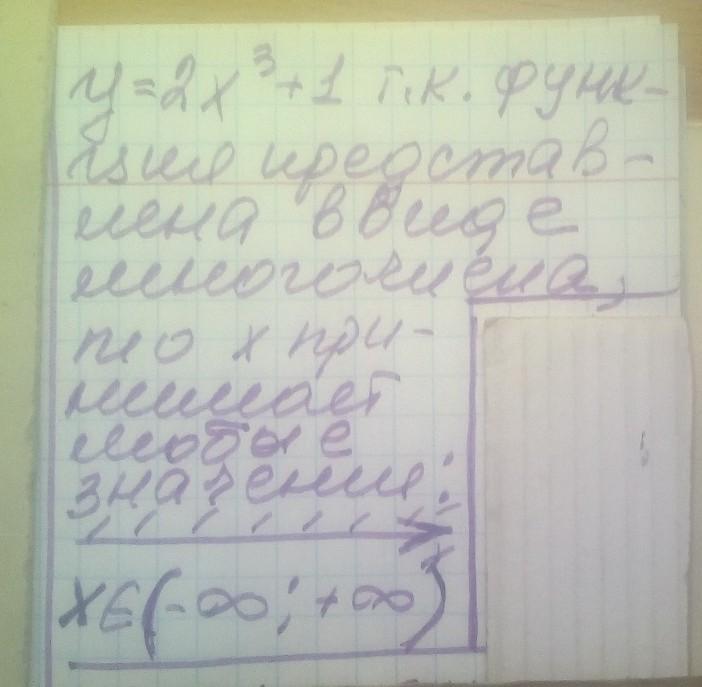 y=2x³+1 т.к. функ-
ция представ-
лена в виде
многочлена,
то x при-
нимает
любые
значения:
x
x∈(-∞; +∞)